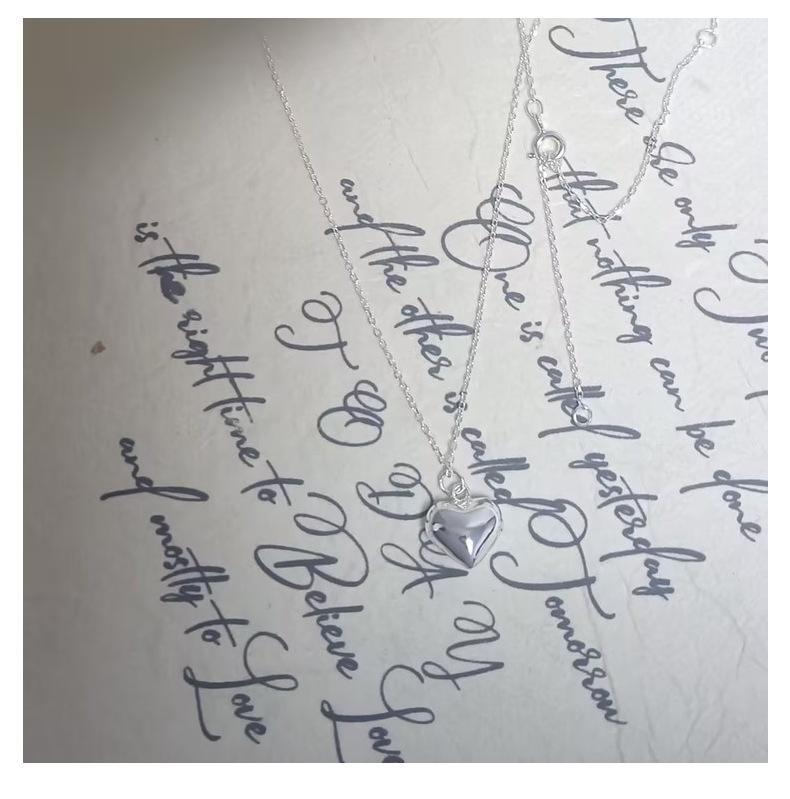 There are only
that nothing can be done
One is called yesterday
and the other is called Tomorrow
TODAY
is the right time to Believe Love
and mostly to Love